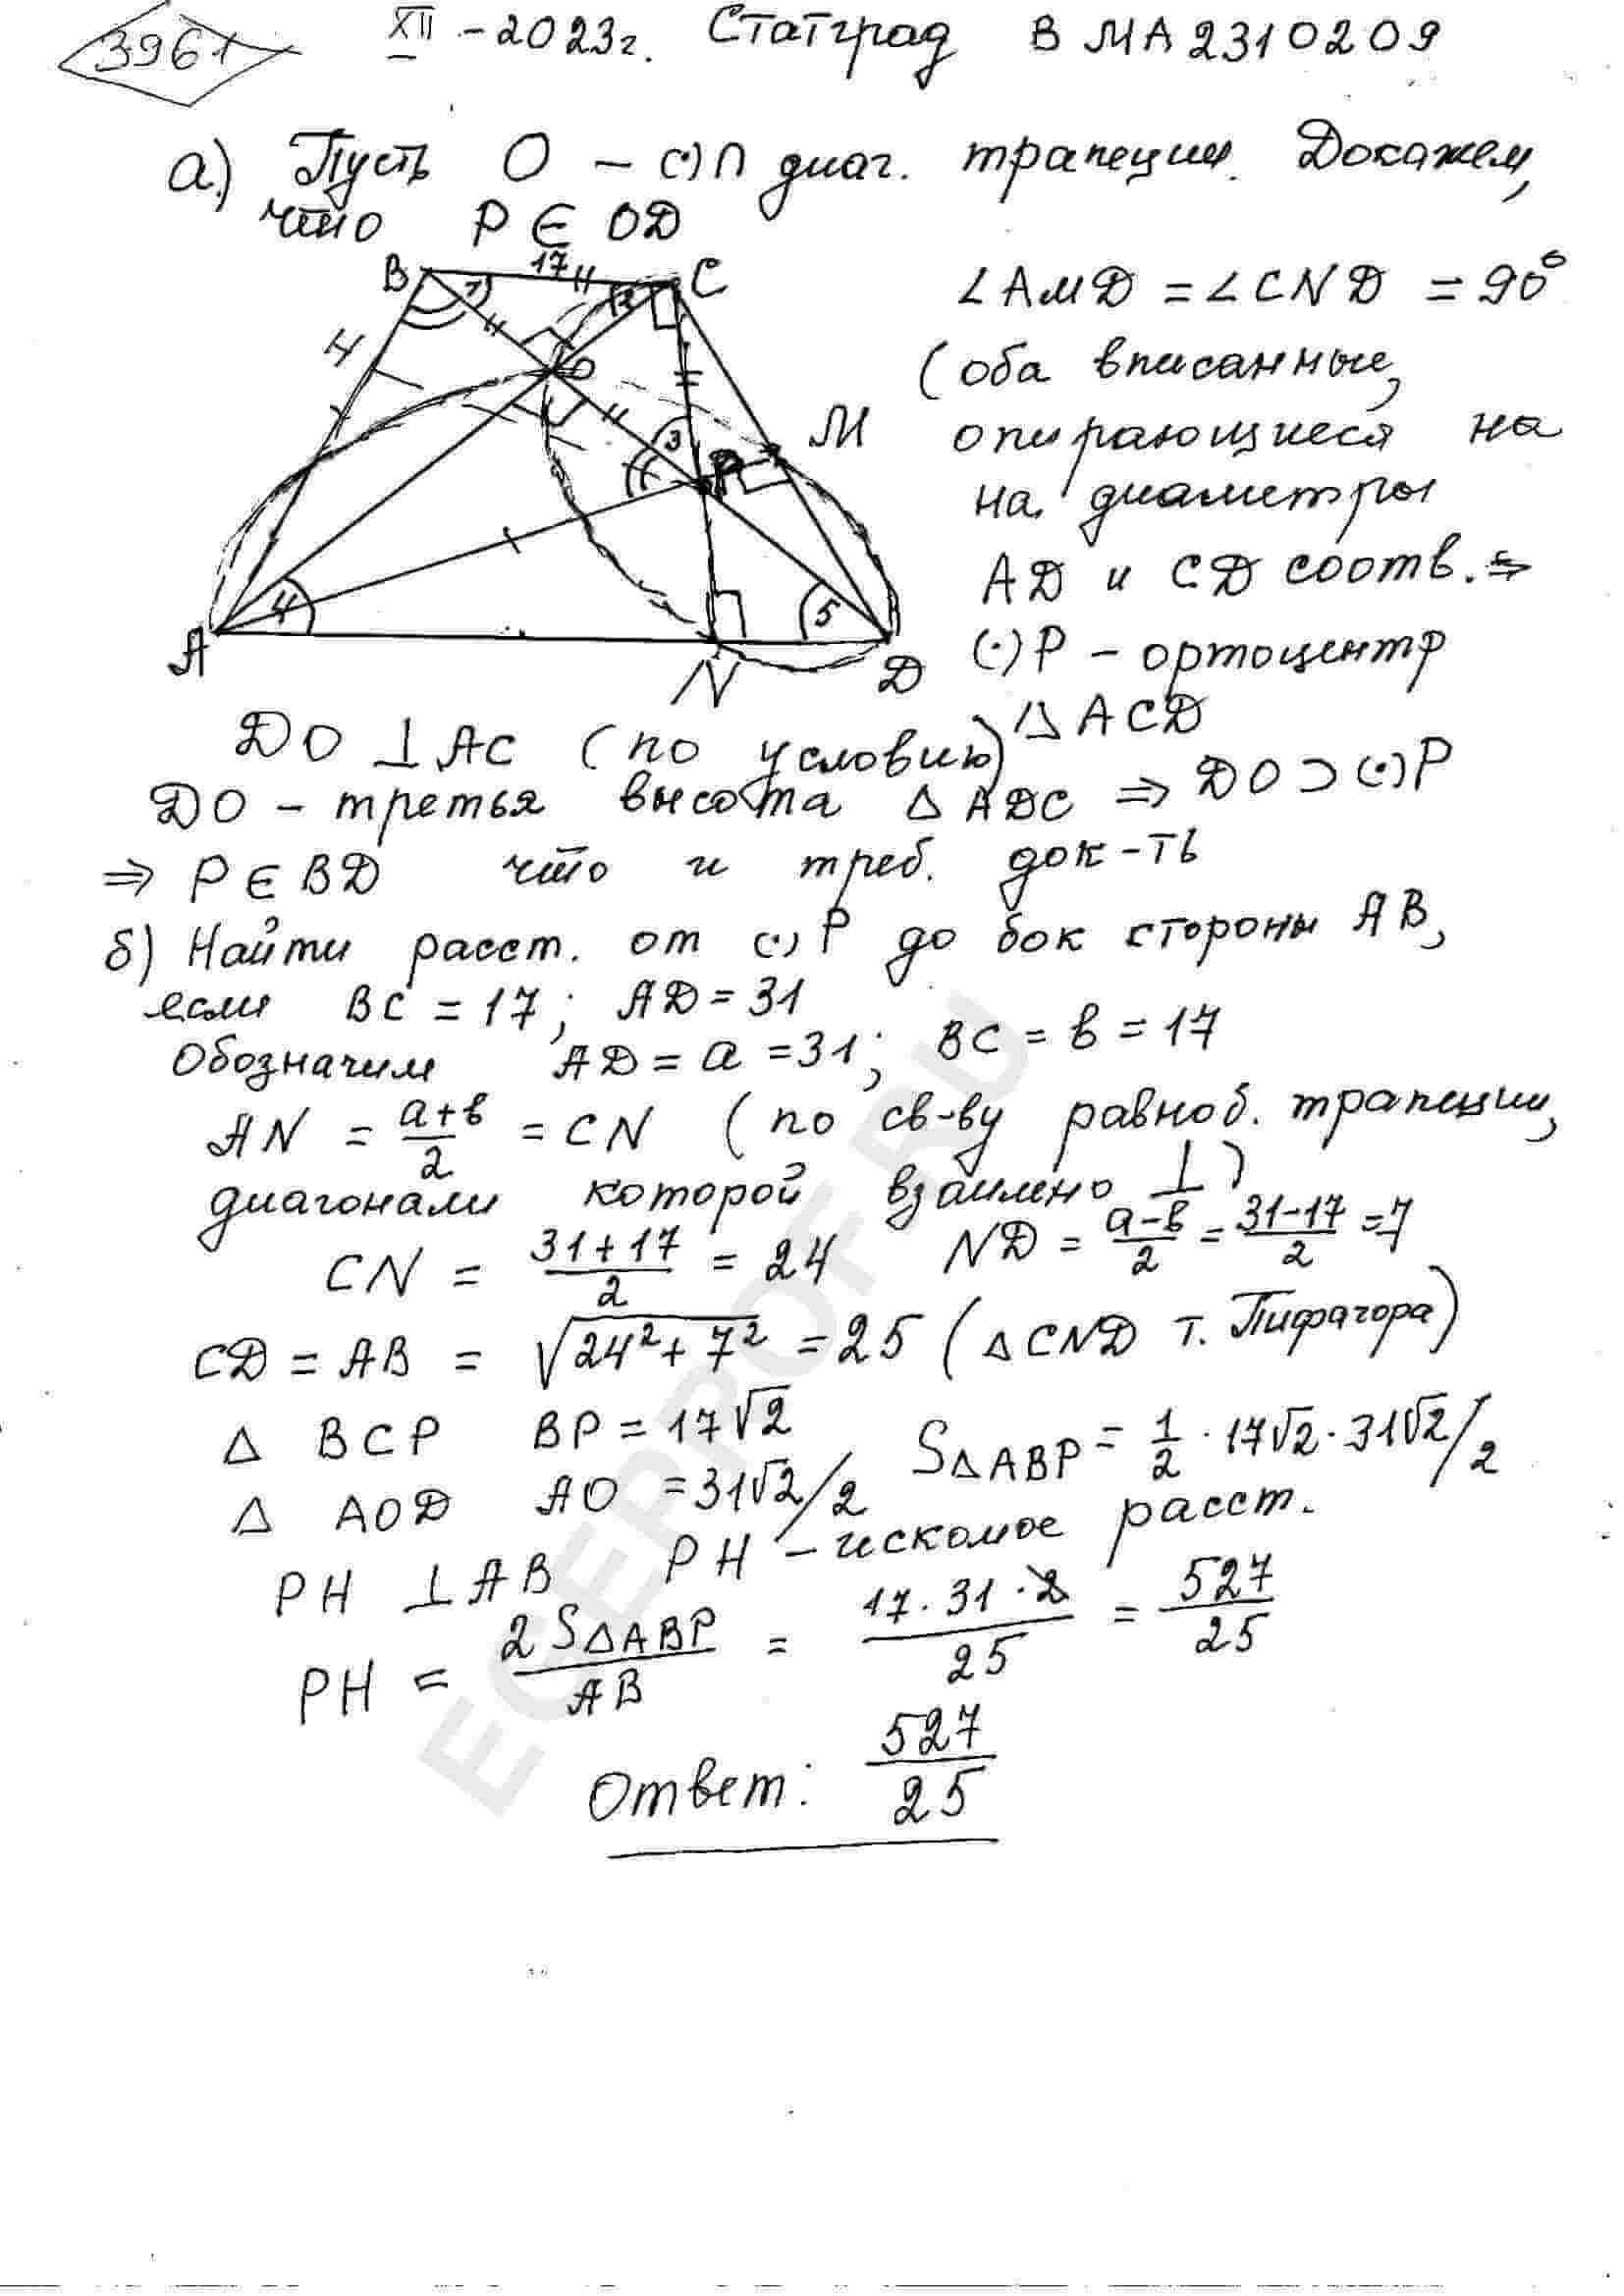 3961 XII - 2023г. Статград В МА2310209
а.) Пусть O – (·)∩ диаг. трапеции. Докажем,
что P ∈ OD
B 17 C
H 1 2 O
3 P M
4 5
A N D
∠AMD = ∠CND = 90°
(оба вписанные,
опирающиеся на
на диаметры
AD и CD соотв. ⇒
(·)P – ортоцентр
△ACD
DO ⊥ AC (по условию)
DO – третья высота △ADC ⇒ DO ⊃ (·)P
⇒ P ∈ BD что и треб. док-ть
б) Найти расст. от (·)P до бок стороны AB,
если BC = 17; AD = 31
Обозначим AD = a = 31; BC = b = 17
AN = (a+b)/2 = CN (по св-ву равноб. трапеции,
диагонали которой взаимно ⊥)
CN = (31+17)/2 = 24 ND = (a-b)/2 = (31-17)/2 = 7
CD = AB = √(24²+7²) = 25 (△CND т. Пифагора)
△ BCP BP = 17√2 S△ABP = 1/2 · 17√2 · 31√2/2
△ AOD AO = 31√2/2
PH ⊥ AB PH – искомое расст.
PH = 2S△ABP/AB = 17·31·2/25 = 527/25
Ответ: 527/25
EGEPROF.RU